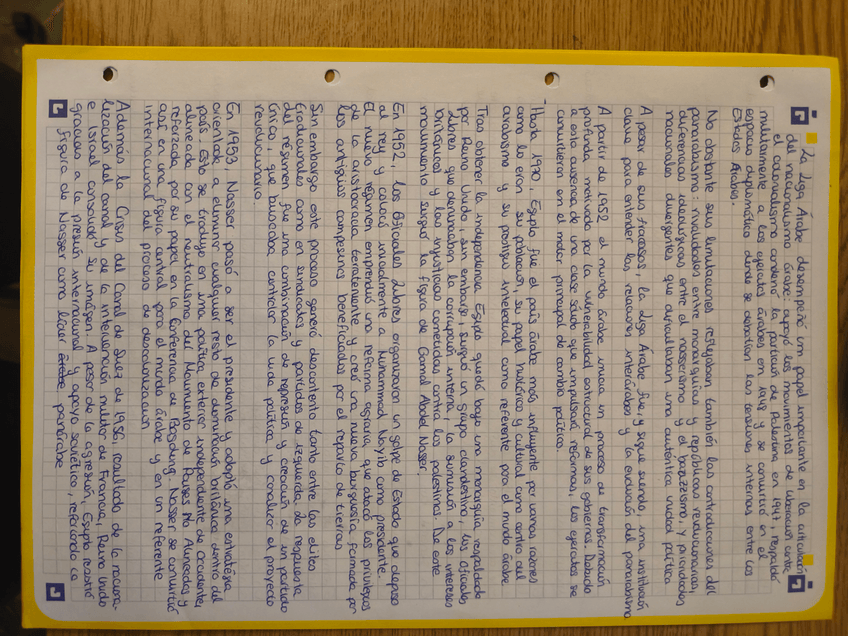 La Liga Árabe desempeñó un papel importante en la articulación
del nacionalismo árabe: apoyó los movimientos de liberación ante
el colonialismo condenó la partición de Palestina en 1947, respaldó
militarmente a los ejércitos árabes en 1948 y se convirtió en el
espacio diplomático donde se debatían las tensiones internas entre los
Estados Árabes.
No obstante sus limitaciones reflejaban también las contradicciones del
panarabismo: rivalidades entre monarquías y repúblicas revolucionarias,
diferencias ideológicas entre el nasserismo y el baazismo, y prioridades
nacionales divergentes que dificultaban una auténtica unidad política
A pesar de sus fracasos, la Liga Árabe fue, y sigue siendo, una institución
clave para entender las relaciones interárabes y la evolución del panarabismo
A partir de 1952 el mundo árabe inicia un proceso de transformación
profunda motivado por la vulnerabilidad estructural de sus gobiernos. Debido
a esta ausencia de una clase sólida que impulsara reformas, los ejércitos se
convirtieron en el motor principal de cambio político.
Hasta 1970, Egipto fue el país árabe más influyente por varias razones
como lo eran su población, su papel histórico y cultural como centro del
arabismo y su prestigio intelectual como referente para el mundo árabe
Tras obtener la independencia Egipto quedó bajo una monarquía respaldada
por Reino Unido, sin embargo surgió un grupo clandestino, los Oficiales
Libres que denunciaban la corrupción interna la sumisión a los intereses
británicos y las injusticias cometidas contra los palestinos. De este
movimiento surgió la figura de Gamal Abdel Nasser.
En 1952, los Oficiales Libres organizaron un golpe de Estado que depuso
al rey y colocó inicialmente a Muhammad Nayib como presidente.
El nuevo régimen emprendió una reforma agraria, que abolió los privilegios
de la aristocracia terrateniente y creó una nueva burguesía formada por
los antiguos campesinos beneficiados por el reparto de tierras
Sin embargo este proceso generó descontento tanto entre las élites
tradicionales como en sindicatos y partidos de izquierda. La respuesta
del régimen fue una combinación de represión y creación de un partido
único, que buscaba controlar la vida política y conducir el proyecto
revolucionario.
En 1953, Nasser pasó a ser el presidente y adoptó una estrategia
orientada a eliminar cualquier resto de dominación británica dentro del
país. Esto se tradujo en una política exterior independiente de Occidente,
alineada con el neutralismo del Movimiento de Países No Alineados y
reforzada por su papel en la Conferencia de Bandung. Nasser se convirtió
así en una figura central para el mundo árabe y en un referente
internacional del proceso de descolonización
Además la Crisis del Canal de Suez de 1956, resultado de la naciona-
lización del canal y de la intervención militar de Francia, Reino Unido
e Israel consolidó su imagen. A pesar de la agresión, Egipto resistió
gracias a la presión internacional y apoyo soviético, reforzando la
figura de Nasser como líder árabe panárabe